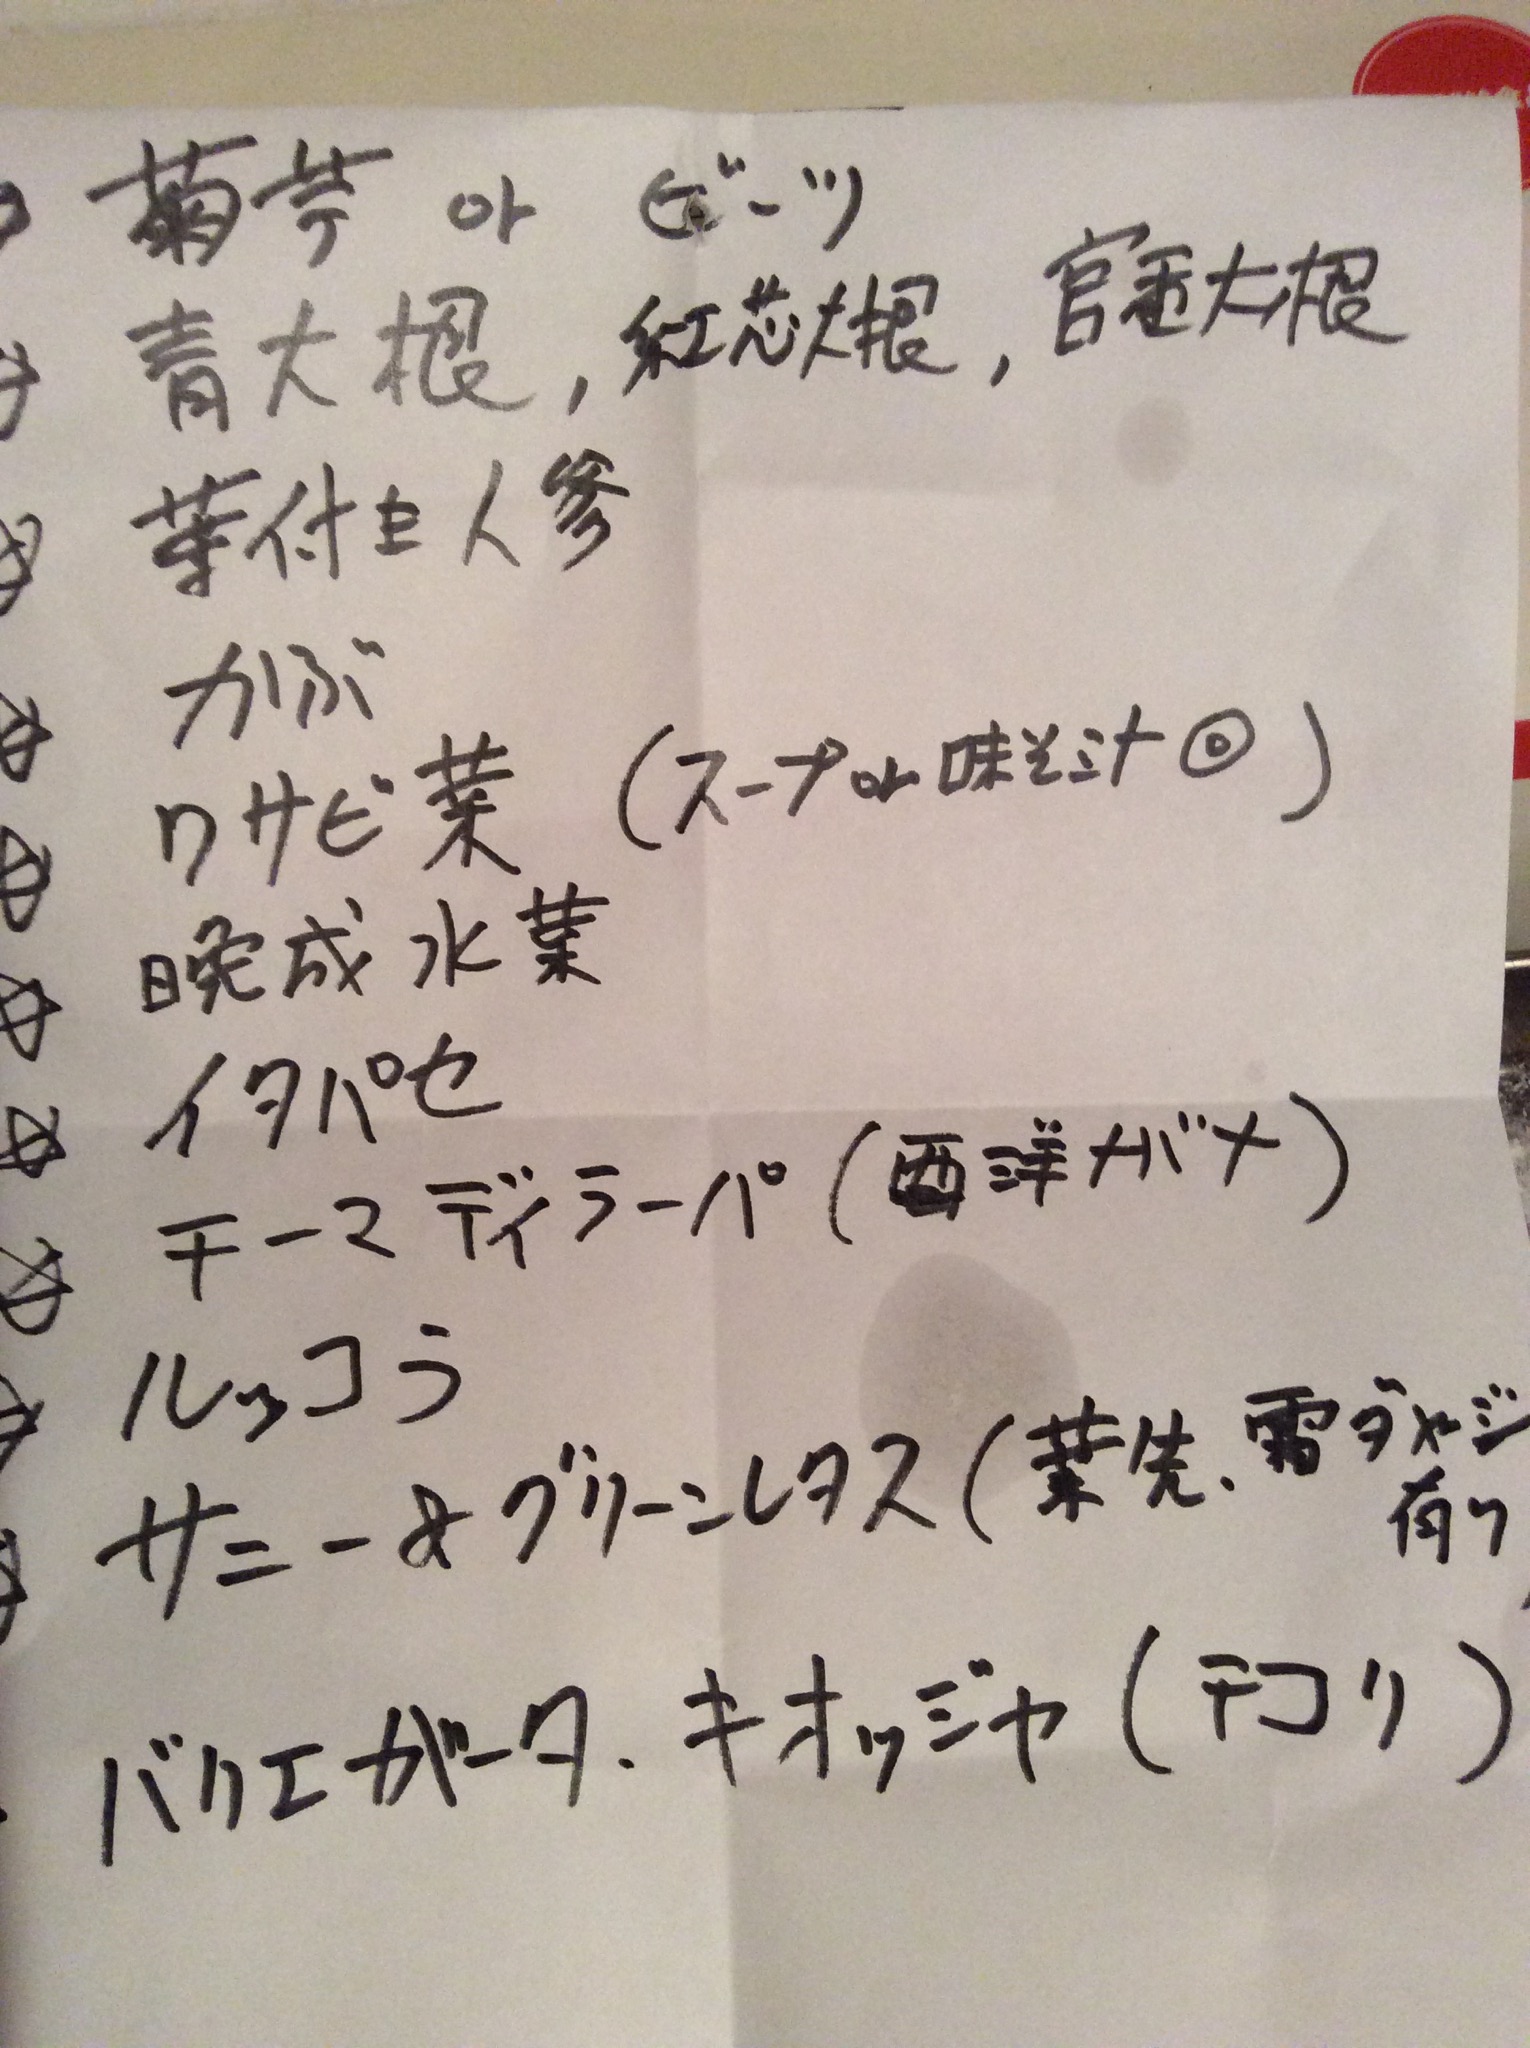 菊芋 or ビーツ
青大根, 紅芯大根, 官重大根
葉付き人参
かぶ
ワサビ葉 (スープor味そ汁◎)
晩成水菜
イタパセ
チーマディラーパ(西洋ナバナ)
ルッコラ
サニー&グリーンレタス(葉先、霜ダメージ
有り
バリエガータ. キオッジャ(テコリ)